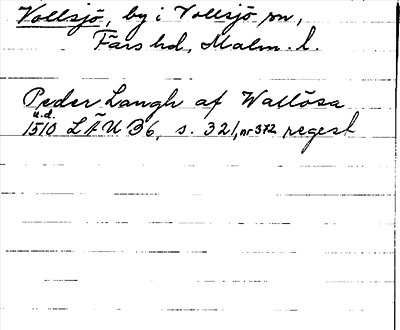 Vollsjö, by i Vollsjö sn,
Färs hd, Malm. l.
Peder Langh af Wallösa
u.d.
1510 LÄU 36, s. 321, nr 372 regest